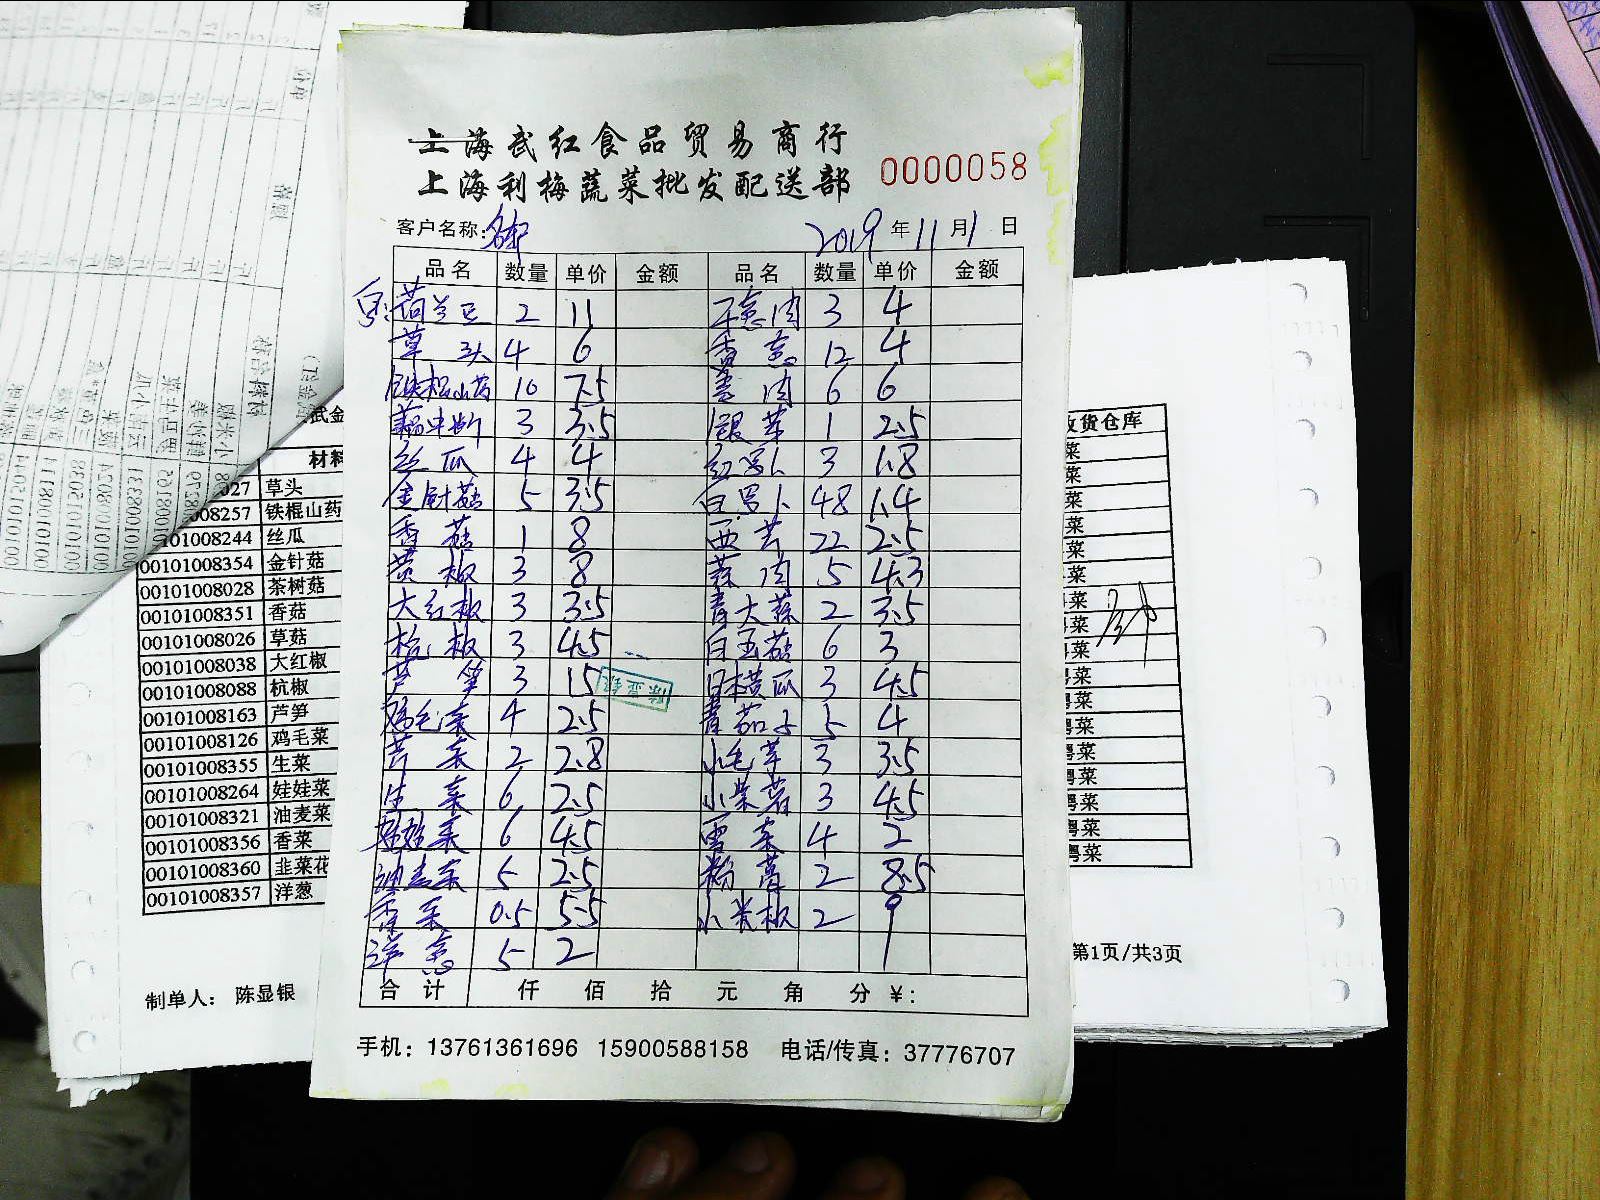 上海武红食品贸易商行
上海利梅蔬菜批发配送部 0000058
客户名称: 2019年11月1日
品名 数量 单价 金额 品名 数量 单价 金额
荷兰豆 2 11 干葱肉 3 4
草头 4 6 香葱 12 4
铁棍山药 10 7.5 姜肉 6 6
3 3.5 银芽 1 2.5
丝瓜 4 4 红罗卜 3 1.8
金针菇 5 3.5 白罗卜 48 1.4
香菇 1 8 西芹 22 2.5
黄椒 3 8 蒜肉 5 4.3
大红椒 3 3.5 青大蒜 2 3.5
杭椒 3 4.5 白玉菇 6 3
芦笋 3 15 日本横瓜 3 4.5
鸡毛菜 4 2.5 青茄子 5 4
芹菜 2 2.8 小毛芋 3 3.5
生菜 6 2.5 小紫薯 3 4.5
娃娃菜 6 4.5 雪菜 4 2
油麦菜 5 2.5 粉葛 2 8.5
香菜 0.5 5.5 小尖椒 2 9
洋葱 5 2
合计 仟 佰 拾 元 角 分 ¥:
手机: 13761361696 15900588158 电话/传真: 37776707
武金
材料
027 草头
008257 铁棍山药
00101008244 丝瓜
00101008354 金针菇
00101008028 茶树菇
00101008351 香菇
00101008026 草菇
00101008038 大红椒
00101008088 杭椒
00101008163 芦笋
00101008126 鸡毛菜
00101008355 生菜
00101008264 娃娃菜
00101008321 油麦菜
00101008356 香菜
00101008360 韭菜花
00101008357 洋葱
制单人: 陈显银
货仓库
菜
菜
菜
菜
菜
菜
菜
粤菜
菜
粤菜
粤菜
粤菜
粤菜
粤菜
粤菜
粤菜
粤菜
第1页/共3页